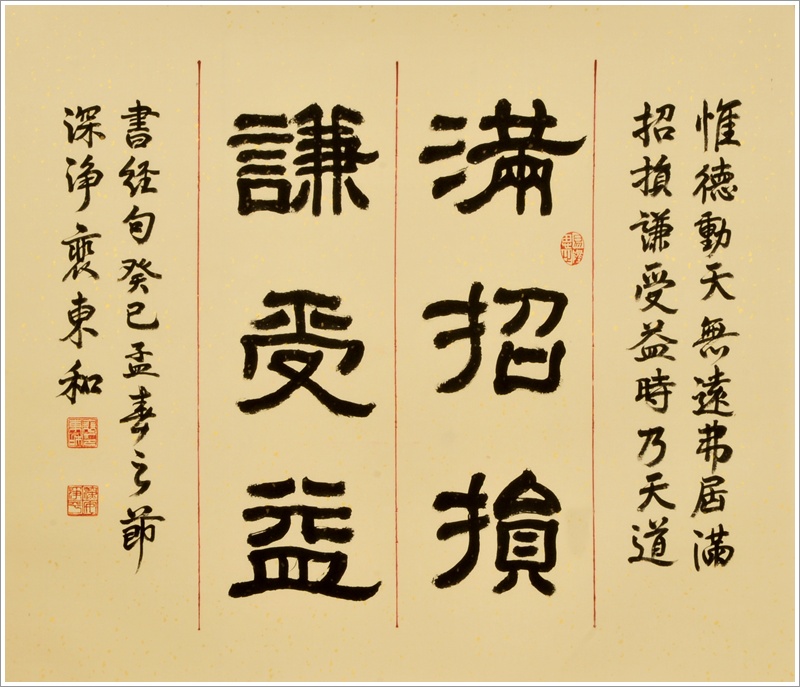 惟德動天無遠弗屆滿
招損謙受益時乃天道
滿招損
謙受益
書經句癸巳孟春之節
深淨裵東和